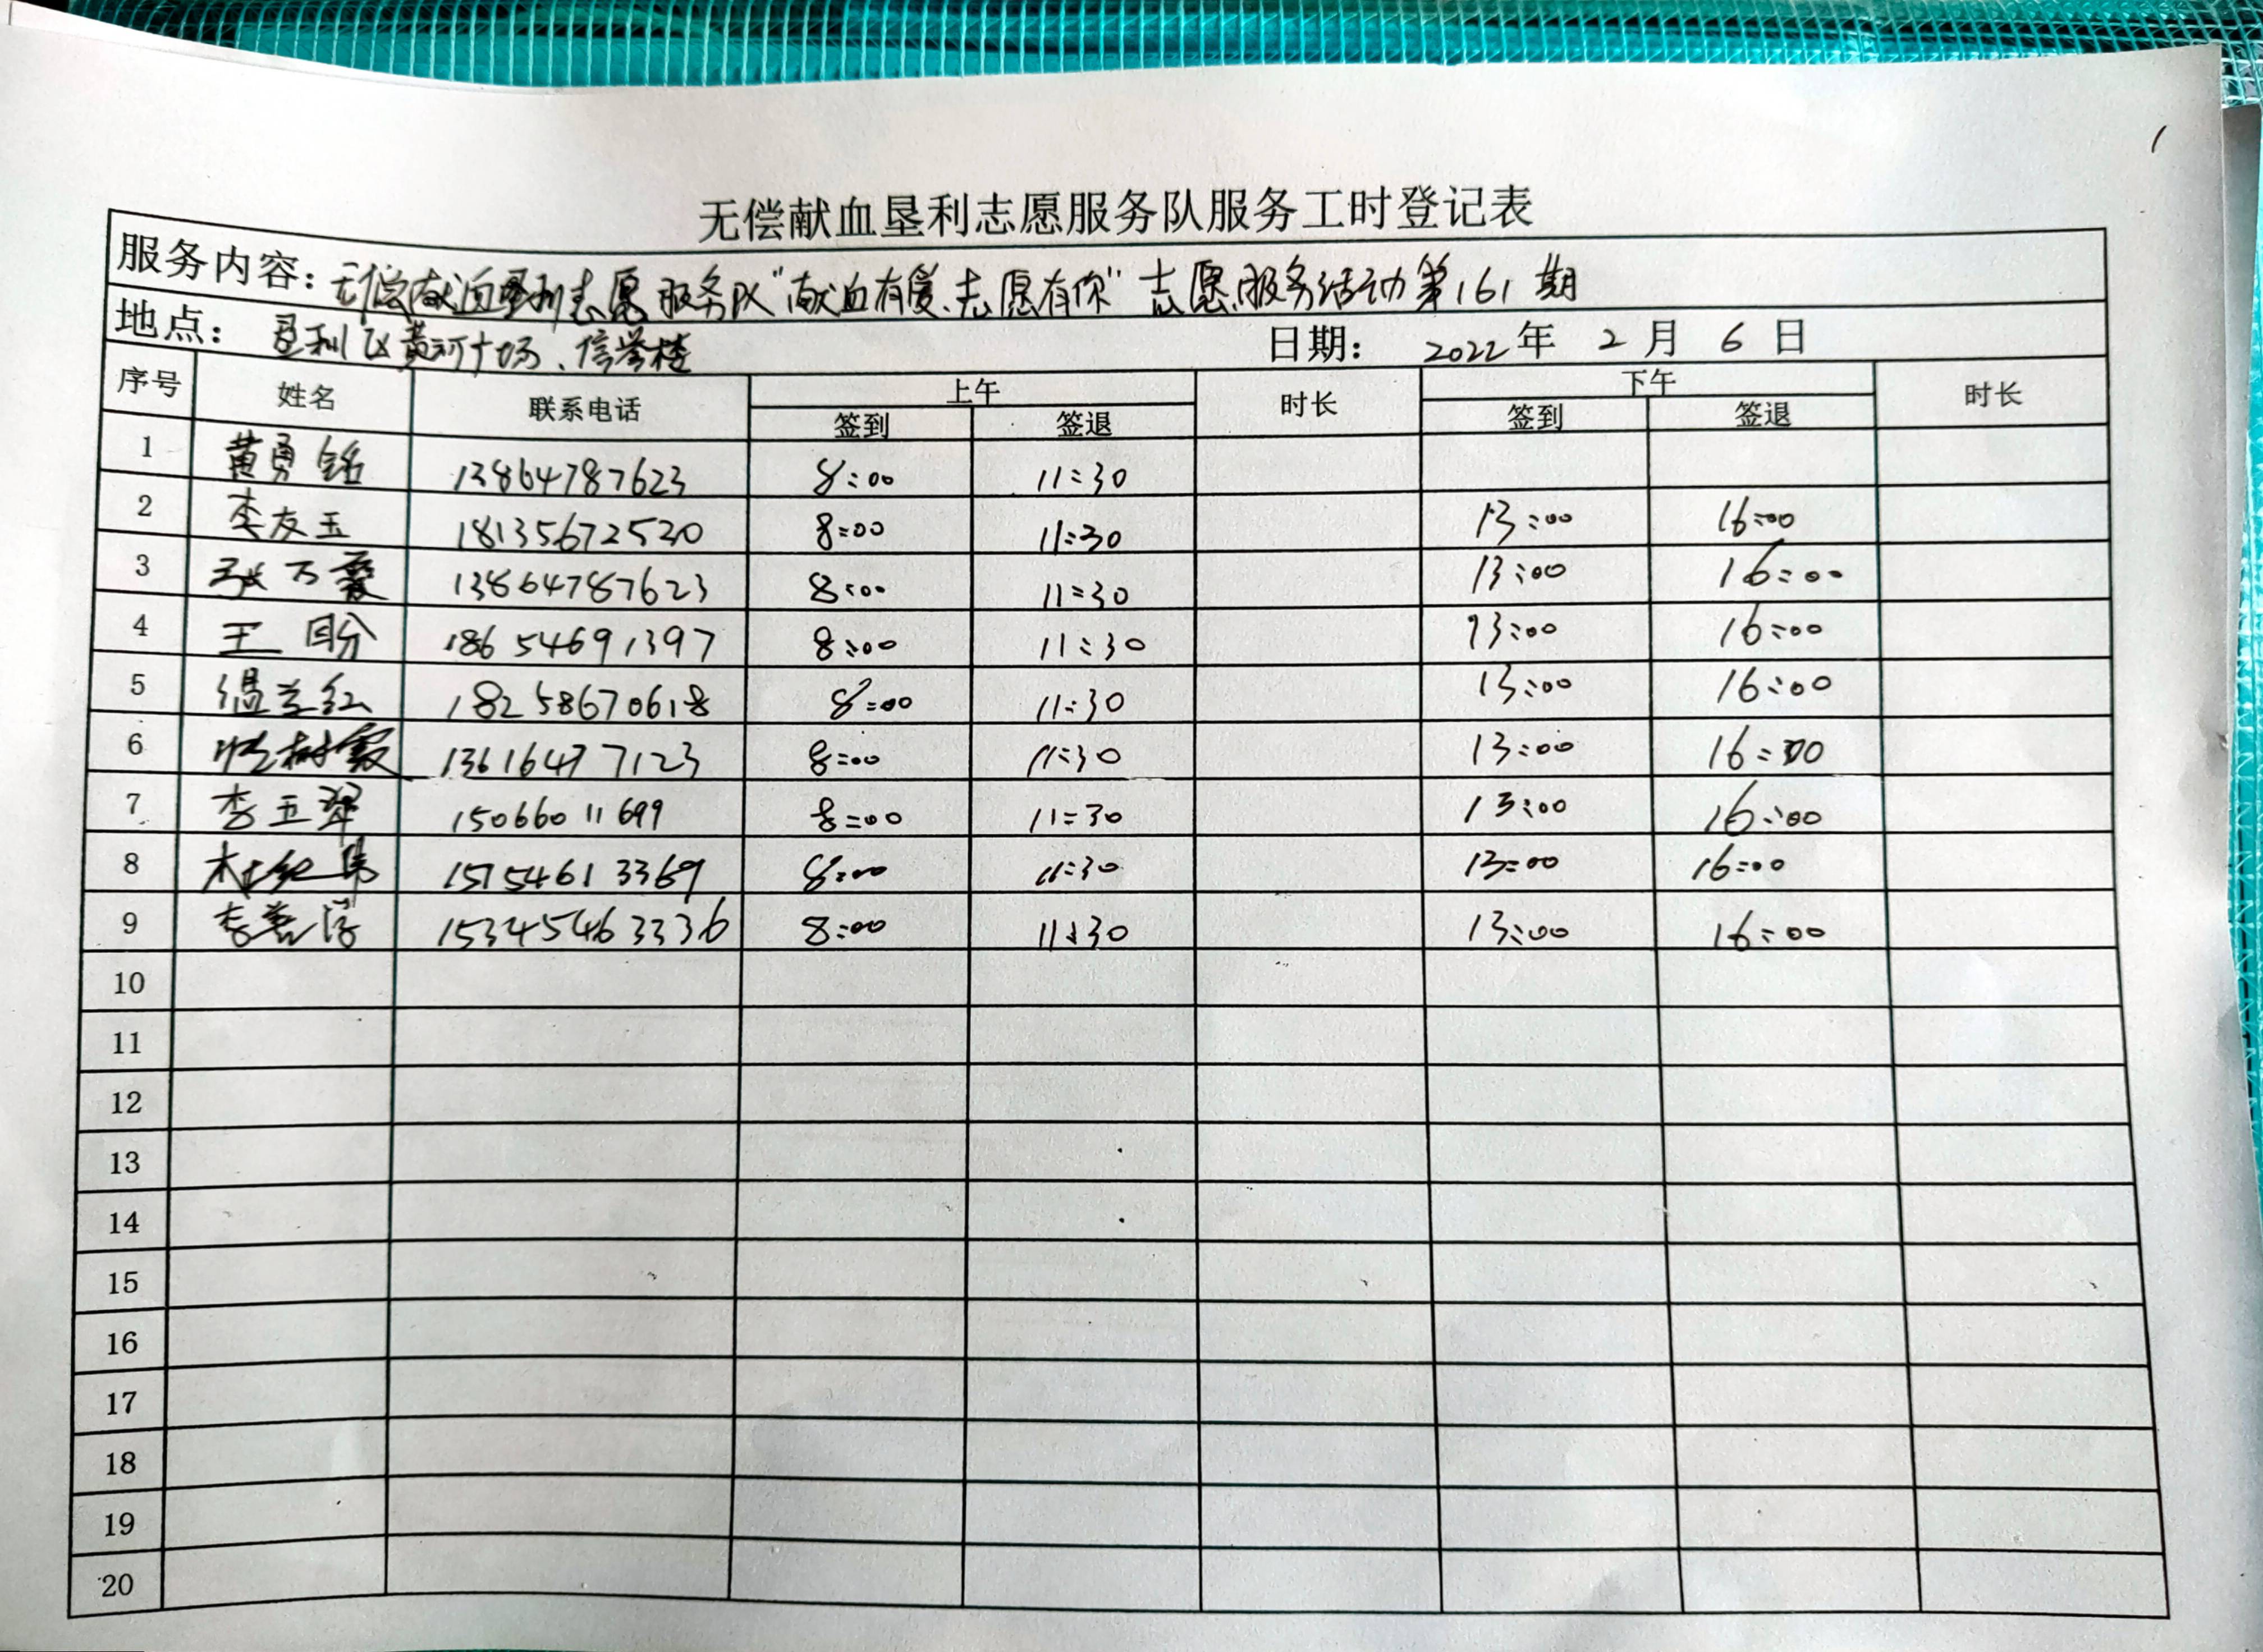 1
无偿献血垦利志愿服务队服务工时登记表
服务内容：无偿献血垦利志愿服务队"献血有爱、志愿有你"志愿服务活动第161期
地点：垦利区黄河广场、信誉楼 日期：2022年2月6日
序号 姓名 联系电话 上午 时长 下午 时长
签到 签退 签到 签退
1 黄勇铭 13864787623 8:00 11:30
2 李友玉 18135672520 8:00 11:30 13:00 16:00
3 张万霞 13864787623 8:00 11:30 13:00 16:00
4 王盼 18654691397 8:00 11:30 13:00 16:00
5 温兰红 18258670618 8:00 11:30 13:00 16:00
6 树霞 13616477123 8:00 11:30 13:00 16:00
7 李玉翠 15066011699 8:00 11:30 13:00 16:00
8 杜纪伟 15154613369 8:00 11:30 13:00 16:00
9 李善 15345463336 8:00 11:30 13:00 16:00
10
11
12
13
14
15
16
17
18
19
20